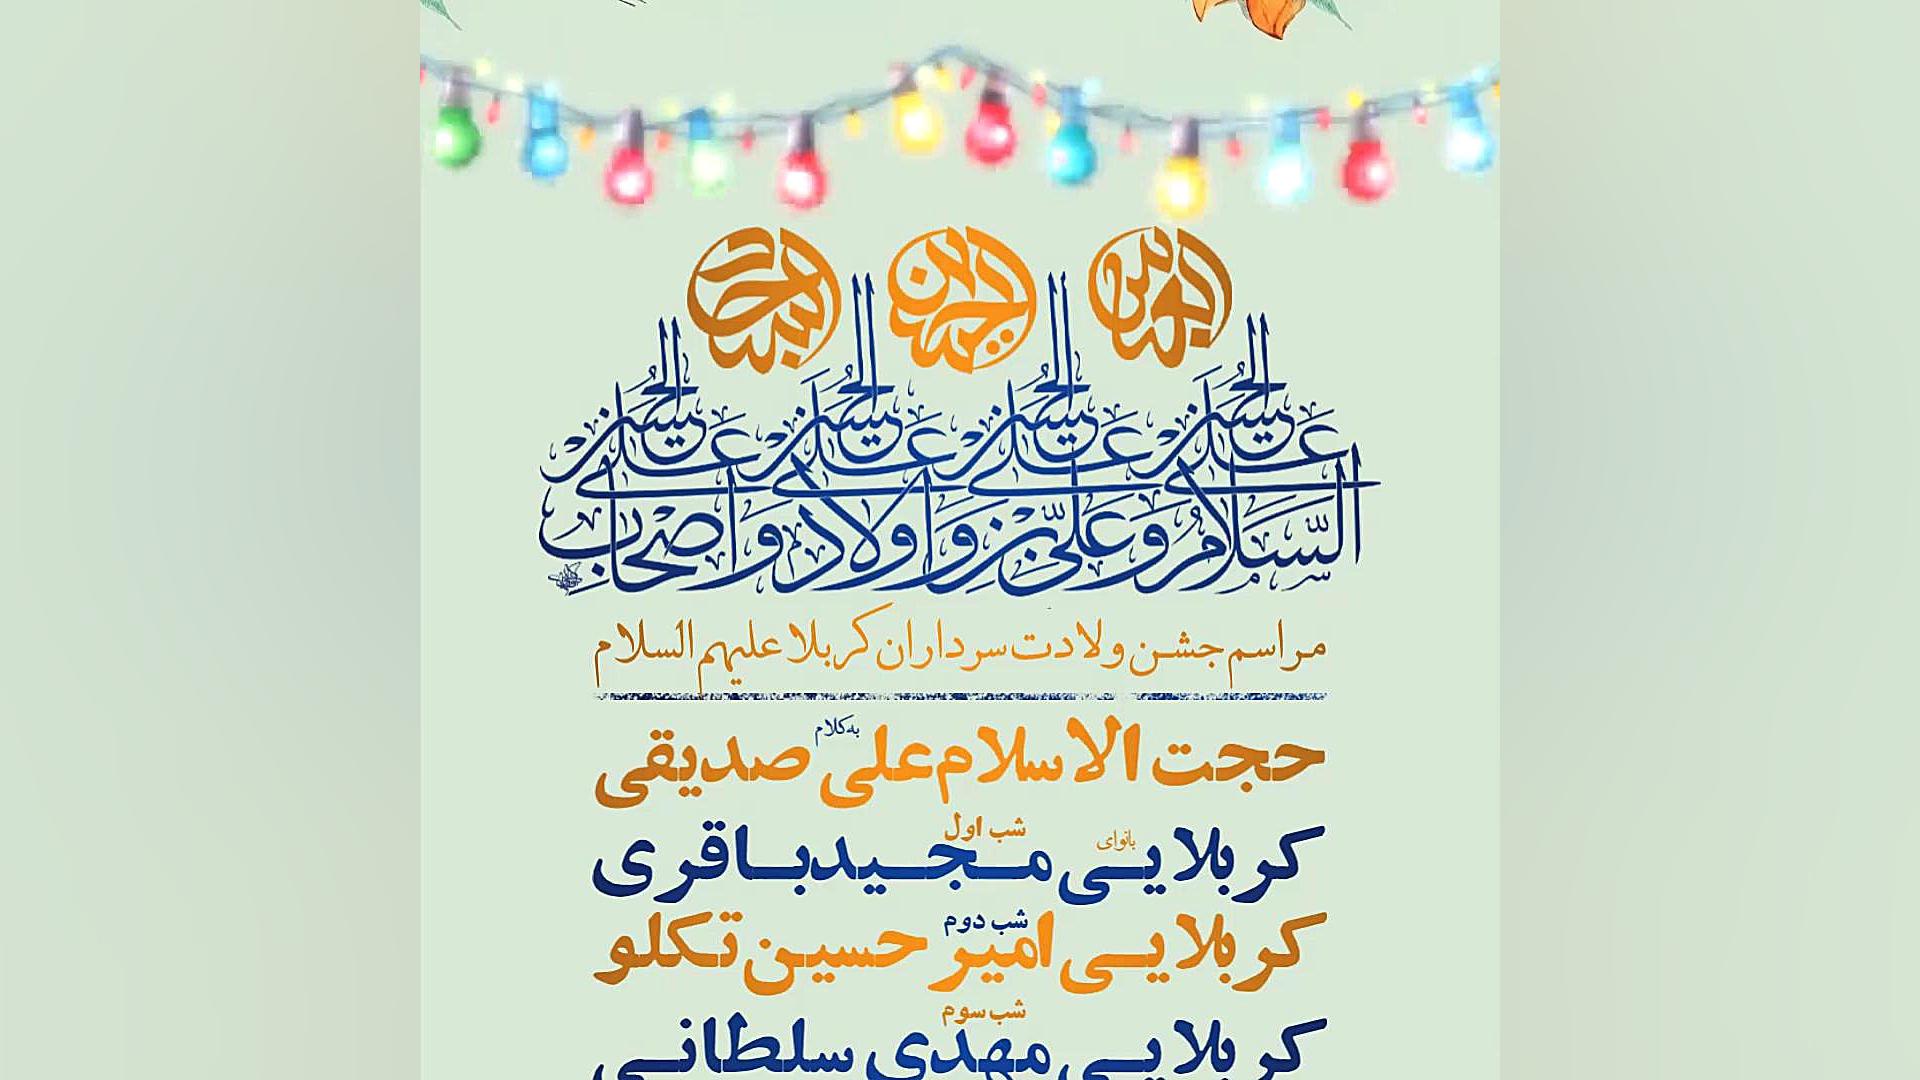 العباس الحسین السجاد
السلام على الحسين وعلى علي بن الحسين وعلى اولاد الحسين وعلى اصحاب الحسين
مراسم جشن ولادت سرداران کربلا علیهم السلام
به کلام
حجت الاسلام علی صدیقی
شب اول
بانوای
کربلایی مجید باقری
شب دوم
کربلایی امیر حسین تکلو
شب سوم
کربلایی مهدی سلطانی